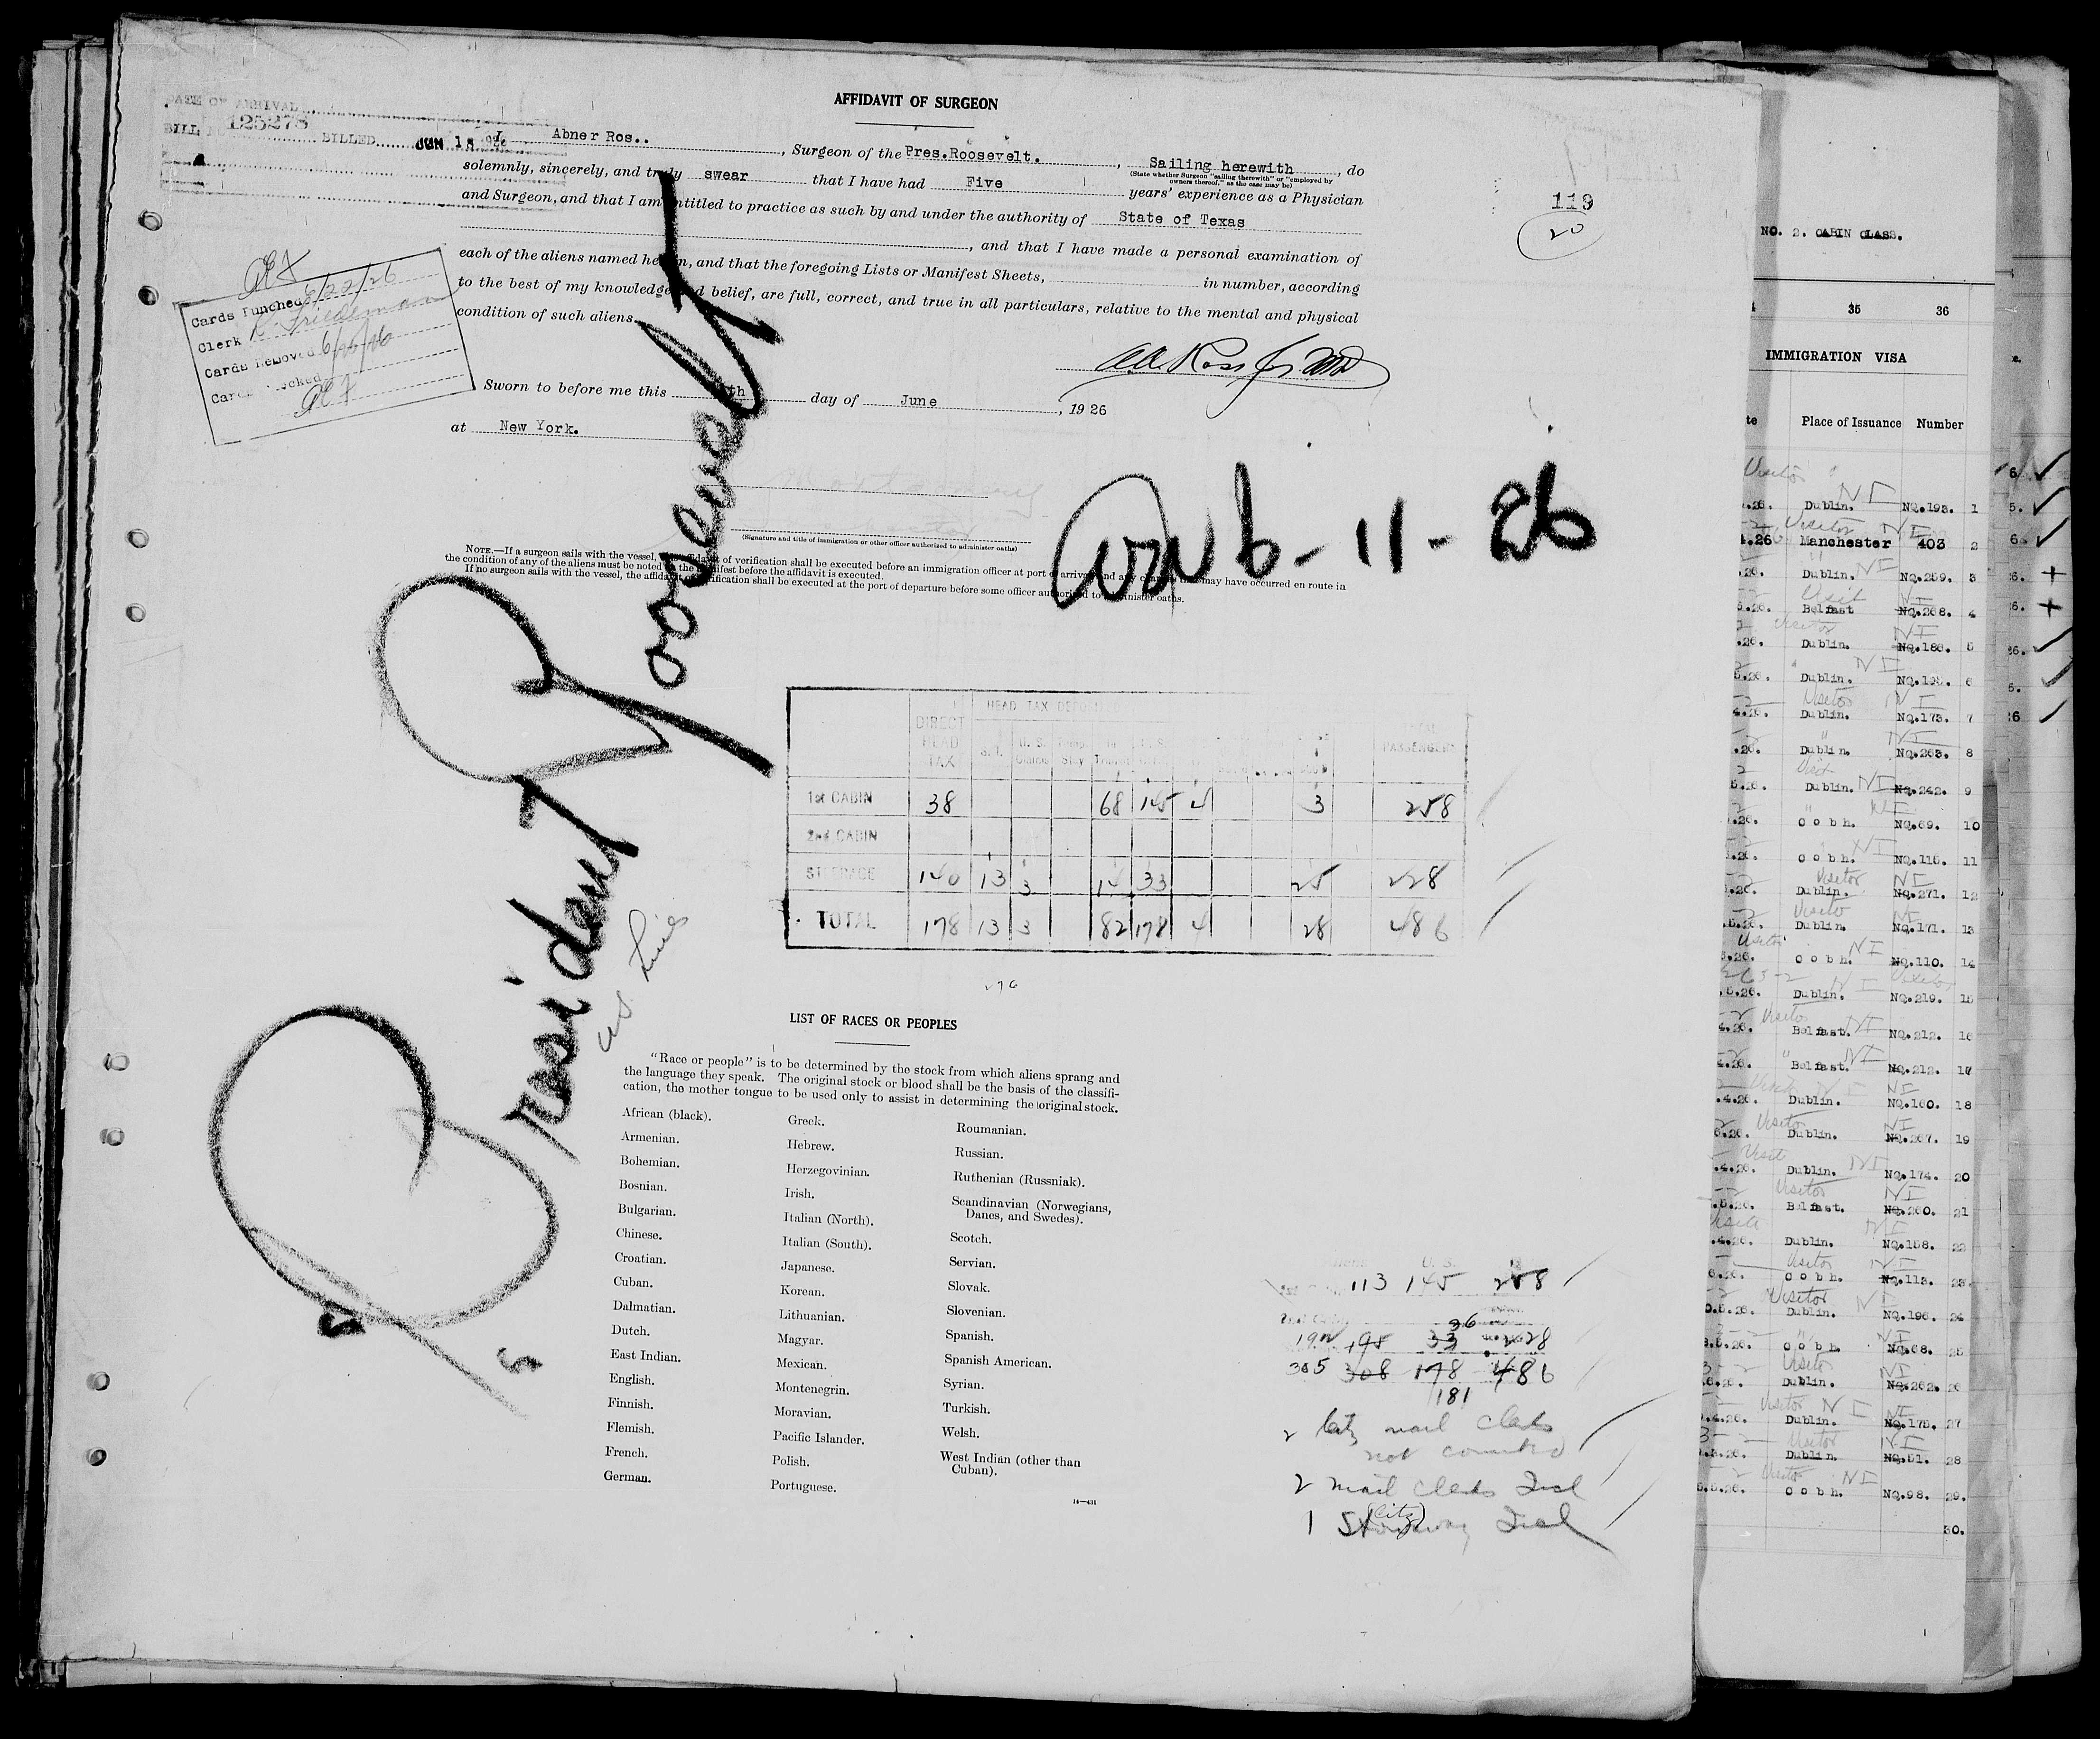 AFFIDAVIT OF SURGEON
DATE OF ARRIVAL
BILL 125278 BILLED JUN 1
I, Abner Ros.. , Surgeon of the Pres.Roosevelt. , Sailing herewith , do
(State whether Surgeon "sailing therewith" or "employed by owners thereof," as the case may be)
solemnly, sincerely, and truly swear that I have had Five years' experience as a Physician
and Surgeon, and that I am entitled to practice as such by and under the authority of State of Texas
, and that I have made a personal examination of
each of the aliens named herein, and that the foregoing Lists or Manifest Sheets, in number, according
to the best of my knowledge and belief, are full, correct, and true in all particulars, relative to the mental and physical
condition of such aliens.
119
20
Cards Punched 6/22/26
Clerk
Cards Removed
Sworn to before me this th day of June , 1926
at New York.
(Signature and title of immigration or other officer authorized to administer oaths)
NOTE.—If a surgeon sails with the vessel, affidavit of verification shall be executed before an immigration officer at port of arrival and any changes that may have occurred en route in
the condition of any of the aliens must be noted on the manifest before the affidavit is executed.
If no surgeon sails with the vessel, the affidavit of verification shall be executed at the port of departure before some officer authorized to administer oaths.
SS President Roosevelt
US Lines
6-11-26
DIRECT HEAD TAX HEAD TAX DEPOSIT PASSENGERS
1st CABIN 38 68 145 4 3 258
2nd CABIN
STEERAGE 140 13 3 14 33 25 228
TOTAL 178 13 3 82 178 4 28 486
LIST OF RACES OR PEOPLES
"Race or people" is to be determined by the stock from which aliens sprang and
the language they speak. The original stock or blood shall be the basis of the classifi-
cation, the mother tongue to be used only to assist in determining the original stock.
African (black).
Armenian.
Bohemian.
Bosnian.
Bulgarian.
Chinese.
Croatian.
Cuban.
Dalmatian.
Dutch.
East Indian.
English.
Finnish.
Flemish.
French.
German.
Greek.
Hebrew.
Herzegovinian.
Irish.
Italian (North).
Italian (South).
Japanese.
Korean.
Lithuanian.
Magyar.
Mexican.
Montenegrin.
Moravian.
Pacific Islander.
Polish.
Portuguese.
Roumanian.
Russian.
Ruthenian (Russniak).
Scandinavian (Norwegians,
Danes, and Swedes).
Scotch.
Servian.
Slovak.
Slovenian.
Spanish.
Spanish American.
Syrian.
Turkish.
Welsh.
West Indian (other than
Cuban).
14—431
113 145 258
36
192 195 33 228
305 308 178 486
181
2 Citz mail clerks
not counted
2 mail clerks Incl
1 Stowaway (Citz) Incl
NO. 2. CABIN CLASS.
35 36
IMMIGRATION VISA
Place of Issuance Number
Dublin. NO.193. 1
Manchester 403 2
Dublin. NO.259. 3
Belfast NO.268. 4
Dublin. NO.186. 5
Dublin. NO.192. 6
Dublin. NO.173. 7
Dublin. NO.263. 8
Dublin. NO.242. 9
Cobh. NO.69. 10
Cobh. NO.115. 11
Dublin. NO.271. 12
Dublin. NO.171. 13
Cobh. NO.110. 14
Dublin. NO.219. 15
Belfast. NO.212. 16
Belfast. NO.212. 17
Dublin. NO.160. 18
Dublin. NO.267. 19
Dublin. NO.174. 20
Belfast. NO.260. 21
Dublin. NO.158. 22
Cobh. NO.113. 23
Dublin. NO.196. 24
Cobh. NO.68. 25
Dublin. NO.262. 26
Dublin. NO.175. 27
Dublin. NO.51. 28
Cobh. NO.98. 29.
30.